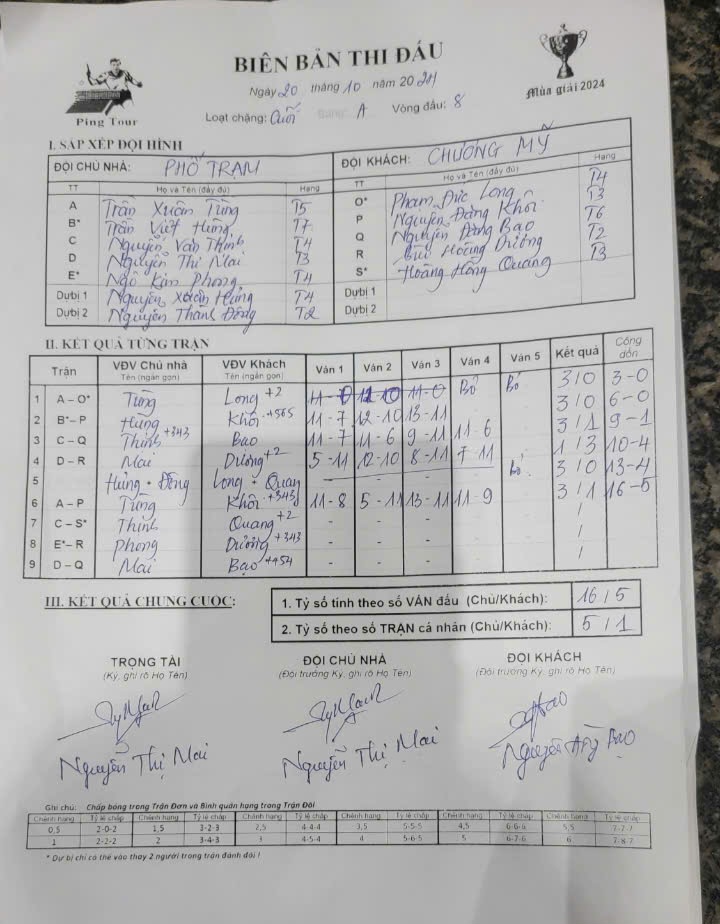 BIÊN BẢN THI ĐẤU
Ngày 20 tháng 10 năm 2024
Ping Tour
Mùa giải 2024
Loại chặng: Cuối Bảng: A Vòng đấu: 8
I. SẮP XẾP ĐỘI HÌNH
ĐỘI CHỦ NHÀ: PHỐ TRẠM ĐỘI KHÁCH: CHƯƠNG MỸ
TT Họ và Tên (đầy đủ) Hạng TT Họ và Tên (đầy đủ) Hạng
A Trần Xuân Tùng T5 O* Phạm Đức Long T4
B* Trần Việt Hùng T7 P Nguyễn Đăng Khôi T3
C Nguyễn Văn Thịnh T4 Q Nguyễn Đăng Bạo T6
D Nguyễn Thị Mai T3 R Bùi Hoàng Dương T2
E* Ngô Kim Phong T4 S* Hoàng Hồng Quang T3
Dự bị 1 Nguyễn Xuân Hùng T4 Dự bị 1
Dự bị 2 Nguyễn Thành Đồng T2 Dự bị 2
II. KẾT QUẢ TỪNG TRẬN
Trận VĐV Chủ nhà VĐV Khách Ván 1 Ván 2 Ván 3 Ván 4 Ván 5 Kết quả Cộng dồn
Tên (ngắn gọn) Tên (ngắn gọn)
1 A – O* Tùng Long +2 11-0 11-0 Bỏ Bỏ 3/0 3-0
2 B* – P Hùng Khôi +565 11-7 12-10 13-11 3/0 6-0
3 C – Q Thịnh +343 Bạo 11-7 11-6 9-11 11-6 3/1 9-1
4 D – R Mai Dương +2 5-11 12-10 8-11 7-11 1/3 10-4
5 Hùng + Đồng Long + Quang - - - - bỏ 3/0 13-4
6 A – P Tùng Khôi +343 11-8 5-11 13-11 11-9 3/1 16-5
7 C – S* Thịnh Quang +2 - - - - - /
8 E* – R Phong Dương +343 - - - - - /
9 D – Q Mai Bạo +454 - - - - - /
III. KẾT QUẢ CHUNG CUỘC:
1. Tỷ số tính theo số VÁN đấu (Chủ/Khách): 16/5
2. Tỷ số theo số TRẬN cá nhân (Chủ/Khách): 5/1
TRỌNG TÀI ĐỘI CHỦ NHÀ ĐỘI KHÁCH
(Ký, ghi rõ Họ Tên) (Đội trưởng Ký, ghi rõ Họ Tên) (Đội trưởng Ký, ghi rõ Họ Tên)
Nguyễn Thị Mai Nguyễn Thị Mai Nguyễn Đăng Bạo
Ghi chú: Chấp bóng trong Trận Đơn và Bình quân hạng trong Trận Đôi
Chênh hạng Tỷ lệ chấp Chênh hạng Tỷ lệ chấp Chênh hạng Tỷ lệ chấp Chênh hạng Tỷ lệ chấp Chênh hạng Tỷ lệ chấp Chênh hạng Tỷ lệ chấp
0,5 2-0-2 1,5 3-2-3 2,5 4-4-4 3,5 5-5-5 4,5 6-6-6 5,5 7-7-7
1 2-2-2 2 3-4-3 3 4-5-4 4 5-6-5 5 6-7-6 6 7-8-7
* Dự bị chỉ có thể vào thay 2 người trong trận đánh đôi !